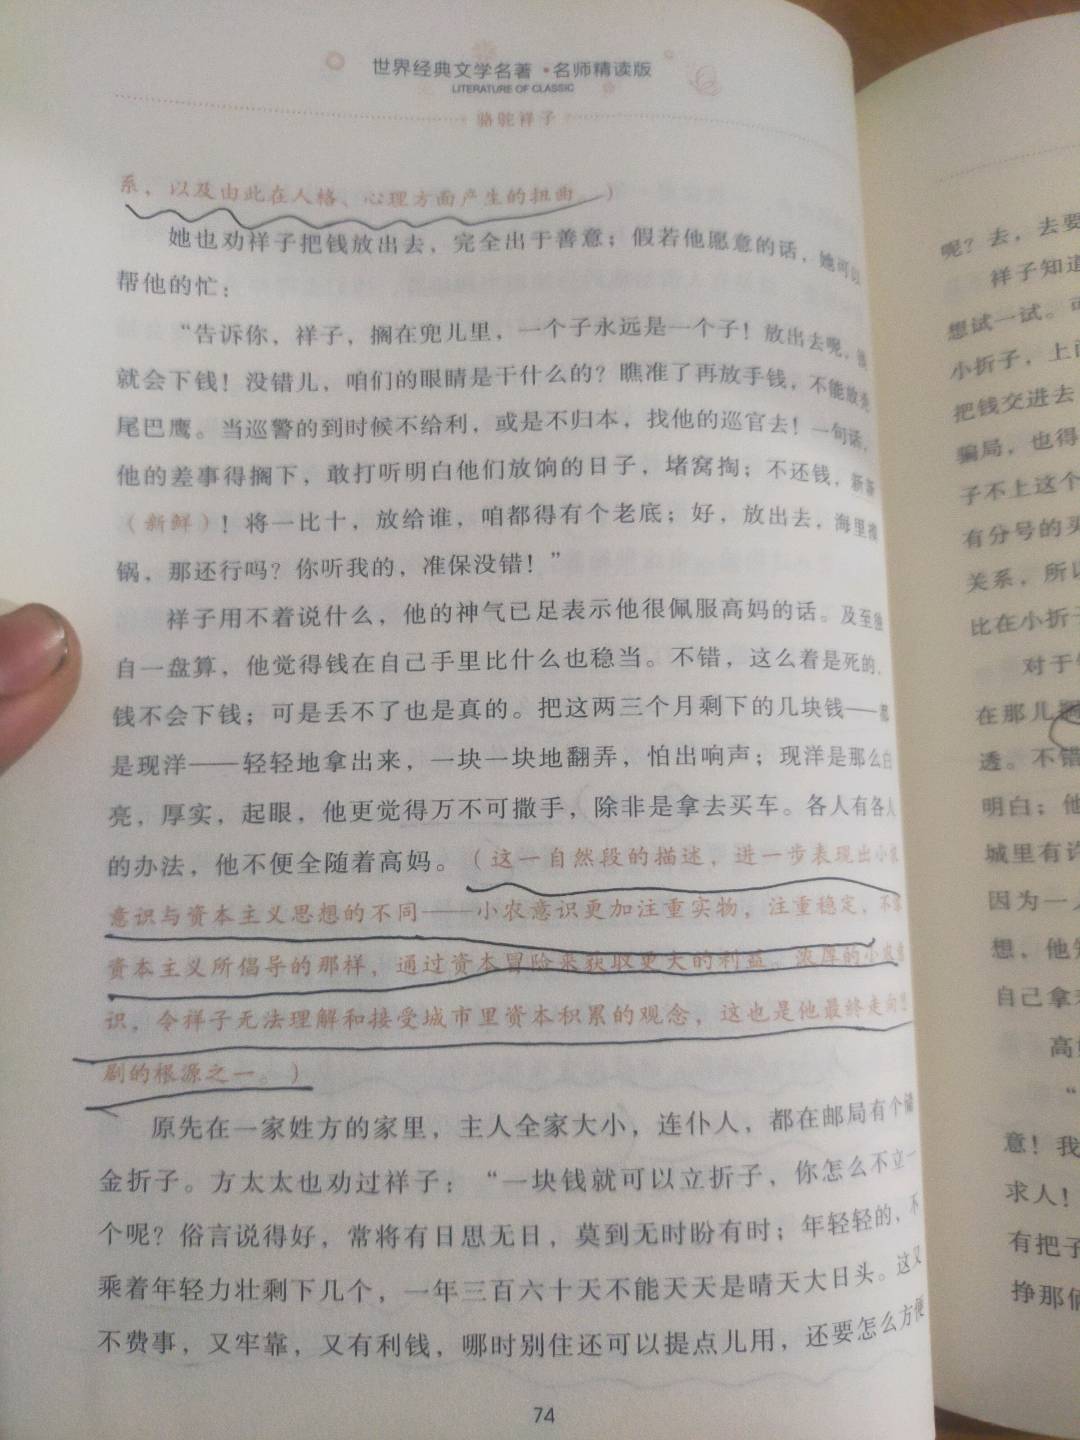 世界经典文学名著·名师精读版
LITERATURE OF CLASSIC
骆驼祥子
系，以及由此在人格、心理方面产生的扭曲。）
她也劝祥子把钱放出去，完全出于善意；假若他愿意的话，她可以
帮他的忙：
“告诉你，祥子，搁在兜儿里，一个子永远是一个子！放出去呢，钱
就会下钱！没错儿，咱们的眼睛是干什么的？瞧准了再放手钱，不能放秃
尾巴鹰。当巡警的到时候不给利，或是不归本，找他的巡官去！一句话，
他的差事得搁下，敢打听明白他们放饷的日子，堵窝掏；不还钱，新新
（新鲜）！将一比十，放给谁，咱都得有个老底；好，放出去，海里摸
锅，那还行吗？你听我的，准保没错！”
祥子用不着说什么，他的神气已足表示他很佩服高妈的话。及至独
自一盘算，他觉得钱在自己手里比什么也稳当。不错，这么着是死的，
钱不会下钱；可是丢不了也是真的。把这两三个月剩下的几块钱——都
是现洋——轻轻地拿出来，一块一块地翻弄，怕出响声；现洋是那么白
亮，厚实，起眼，他更觉得万不可撒手，除非是拿去买车。各人有各人
的办法，他不便全随着高妈。（这一自然段的描述，进一步表现出小农
意识与资本主义思想的不同——小农意识更加注重实物，注重稳定，不
资本主义所倡导的那样，通过资本冒险来获取更大的利益。浓厚的小农意
识，令祥子无法理解和接受城市里资本积累的观念，这也是他最终走向悲
剧的根源之一。）
原先在一家姓方的家里，主人全家大小，连仆人，都在邮局有个储
金折子。方太太也劝过祥子：“一块钱就可以立折子，你怎么不立一
个呢？俗言说得好，常将有日思无日，莫到无时盼有时；年轻轻的，不
乘着年轻力壮剩下几个，一年三百六十天不能天天是晴天大日头。这又
不费事，又牢靠，又有利钱，哪时别住还可以提点儿用，还要怎么方便
74
呢？去，去要
祥子知道
想试一试。
小折子，上
把钱交进去
骗局，也得
子不上这个
有分号的买
关系，所以
比在小折子
对于
在那儿
透。不错
明白；他
城里有许
因为一
想，他知
自己拿
高妈
“
意！我
求人！
有把子
挣那俩